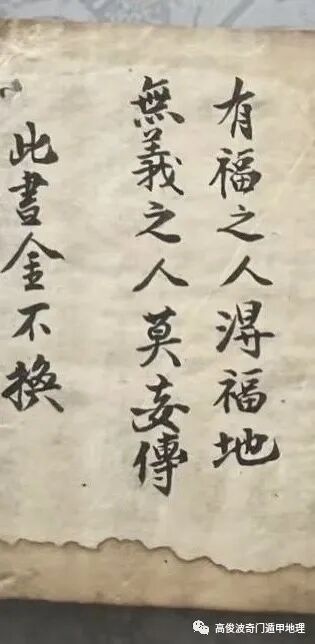 有福之人得福地
無義之人莫妄傳
此書金不換
高俊波奇门遁甲地理